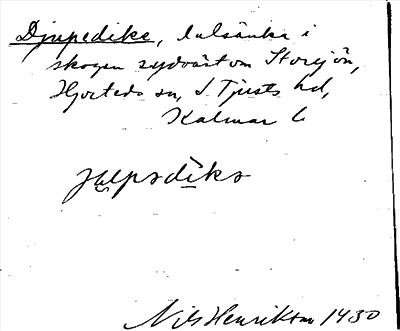 Djupedike, dalsänka i
skogen sydväst om Storsjön,
Hjorteds sn, S. Tjusts hd,
Kalmar l.
Nils Henrikson 1930